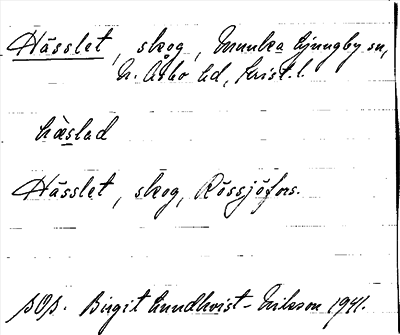 Hässlet, skog, Munka Ljungby sn,
N. Åsbo hd, Krist. l.
hæslad
Hässlet, skog, Rössjöfors.
SOS. Birgit Lundkvist-Erikson 1941.